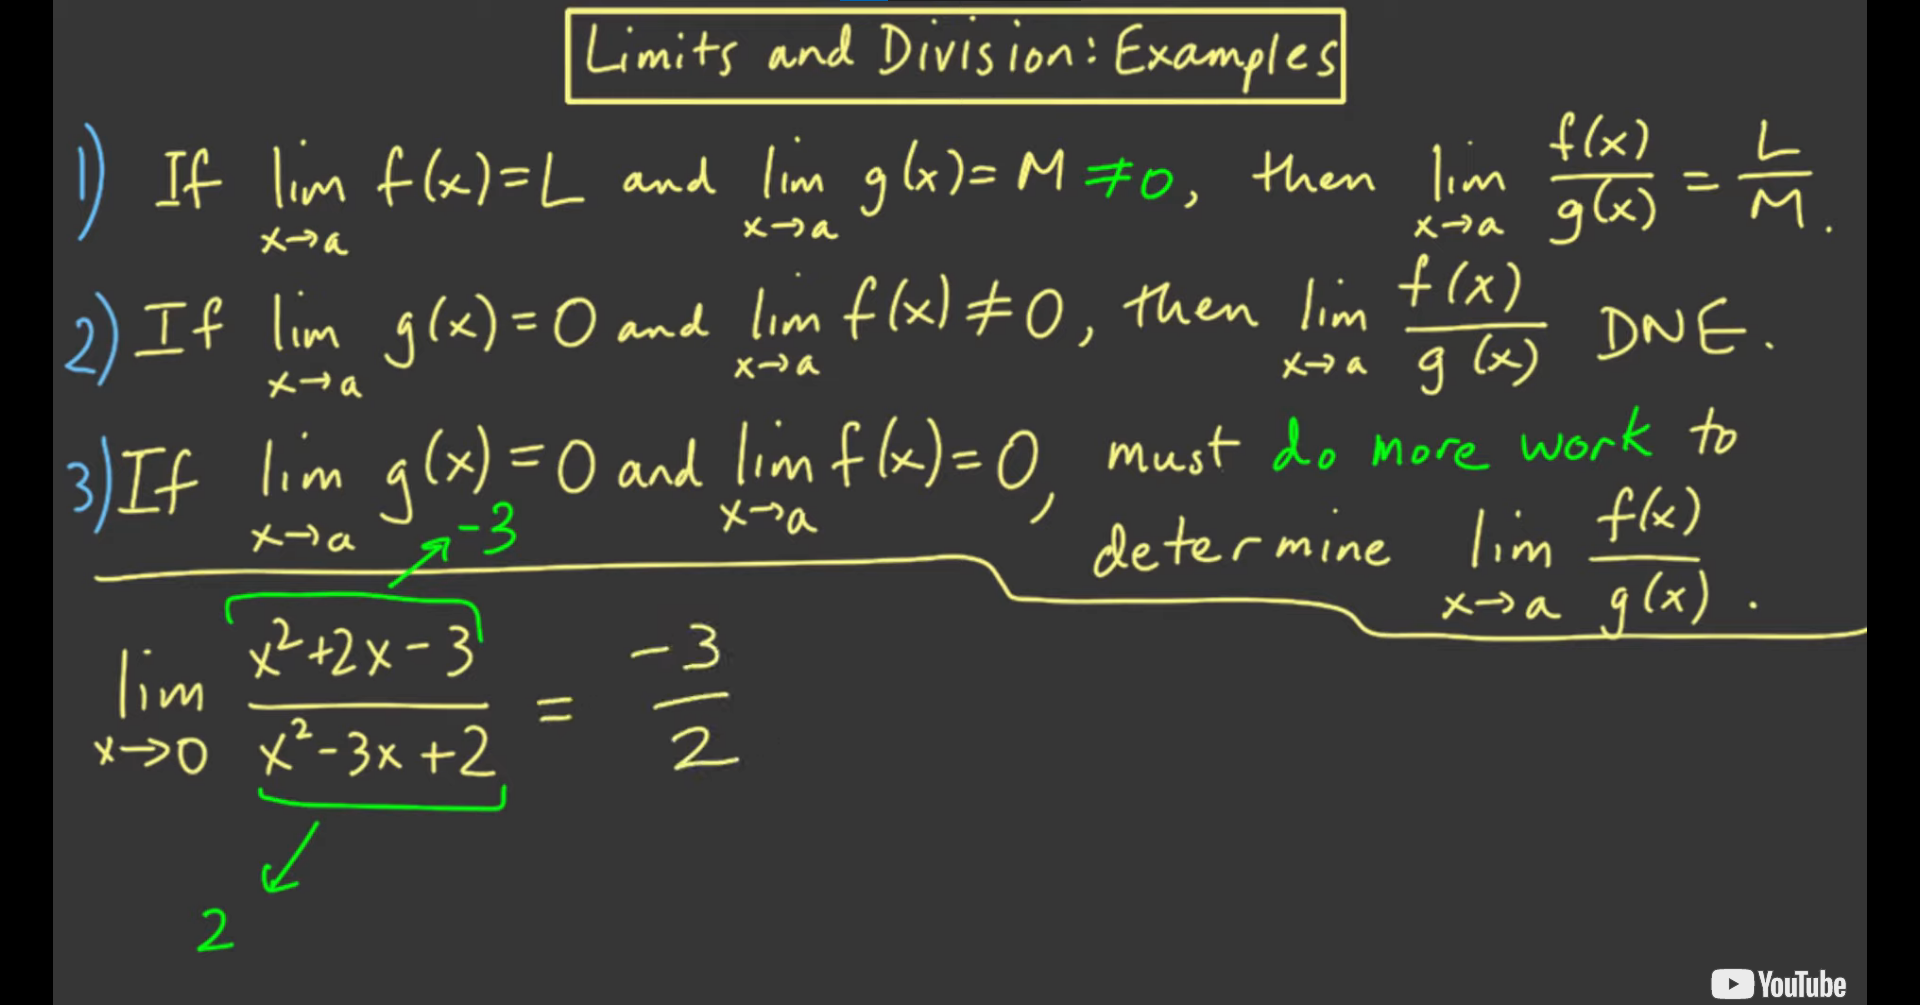 Limits and Division: Examples
1) If lim x→a f(x) = L and lim x→a g(x) = M ≠ 0, then lim x→a f(x)/g(x) = L/M.
2) If lim x→a g(x) = 0 and lim x→a f(x) ≠ 0, then lim x→a f(x)/g(x) DNE.
3) If lim x→a g(x) = 0 and lim x→a f(x) = 0, must do more work to
determine lim x→a f(x)/g(x).
-3
lim x→0 (x²+2x-3)/(x²-3x+2) = -3/2
2
YouTube